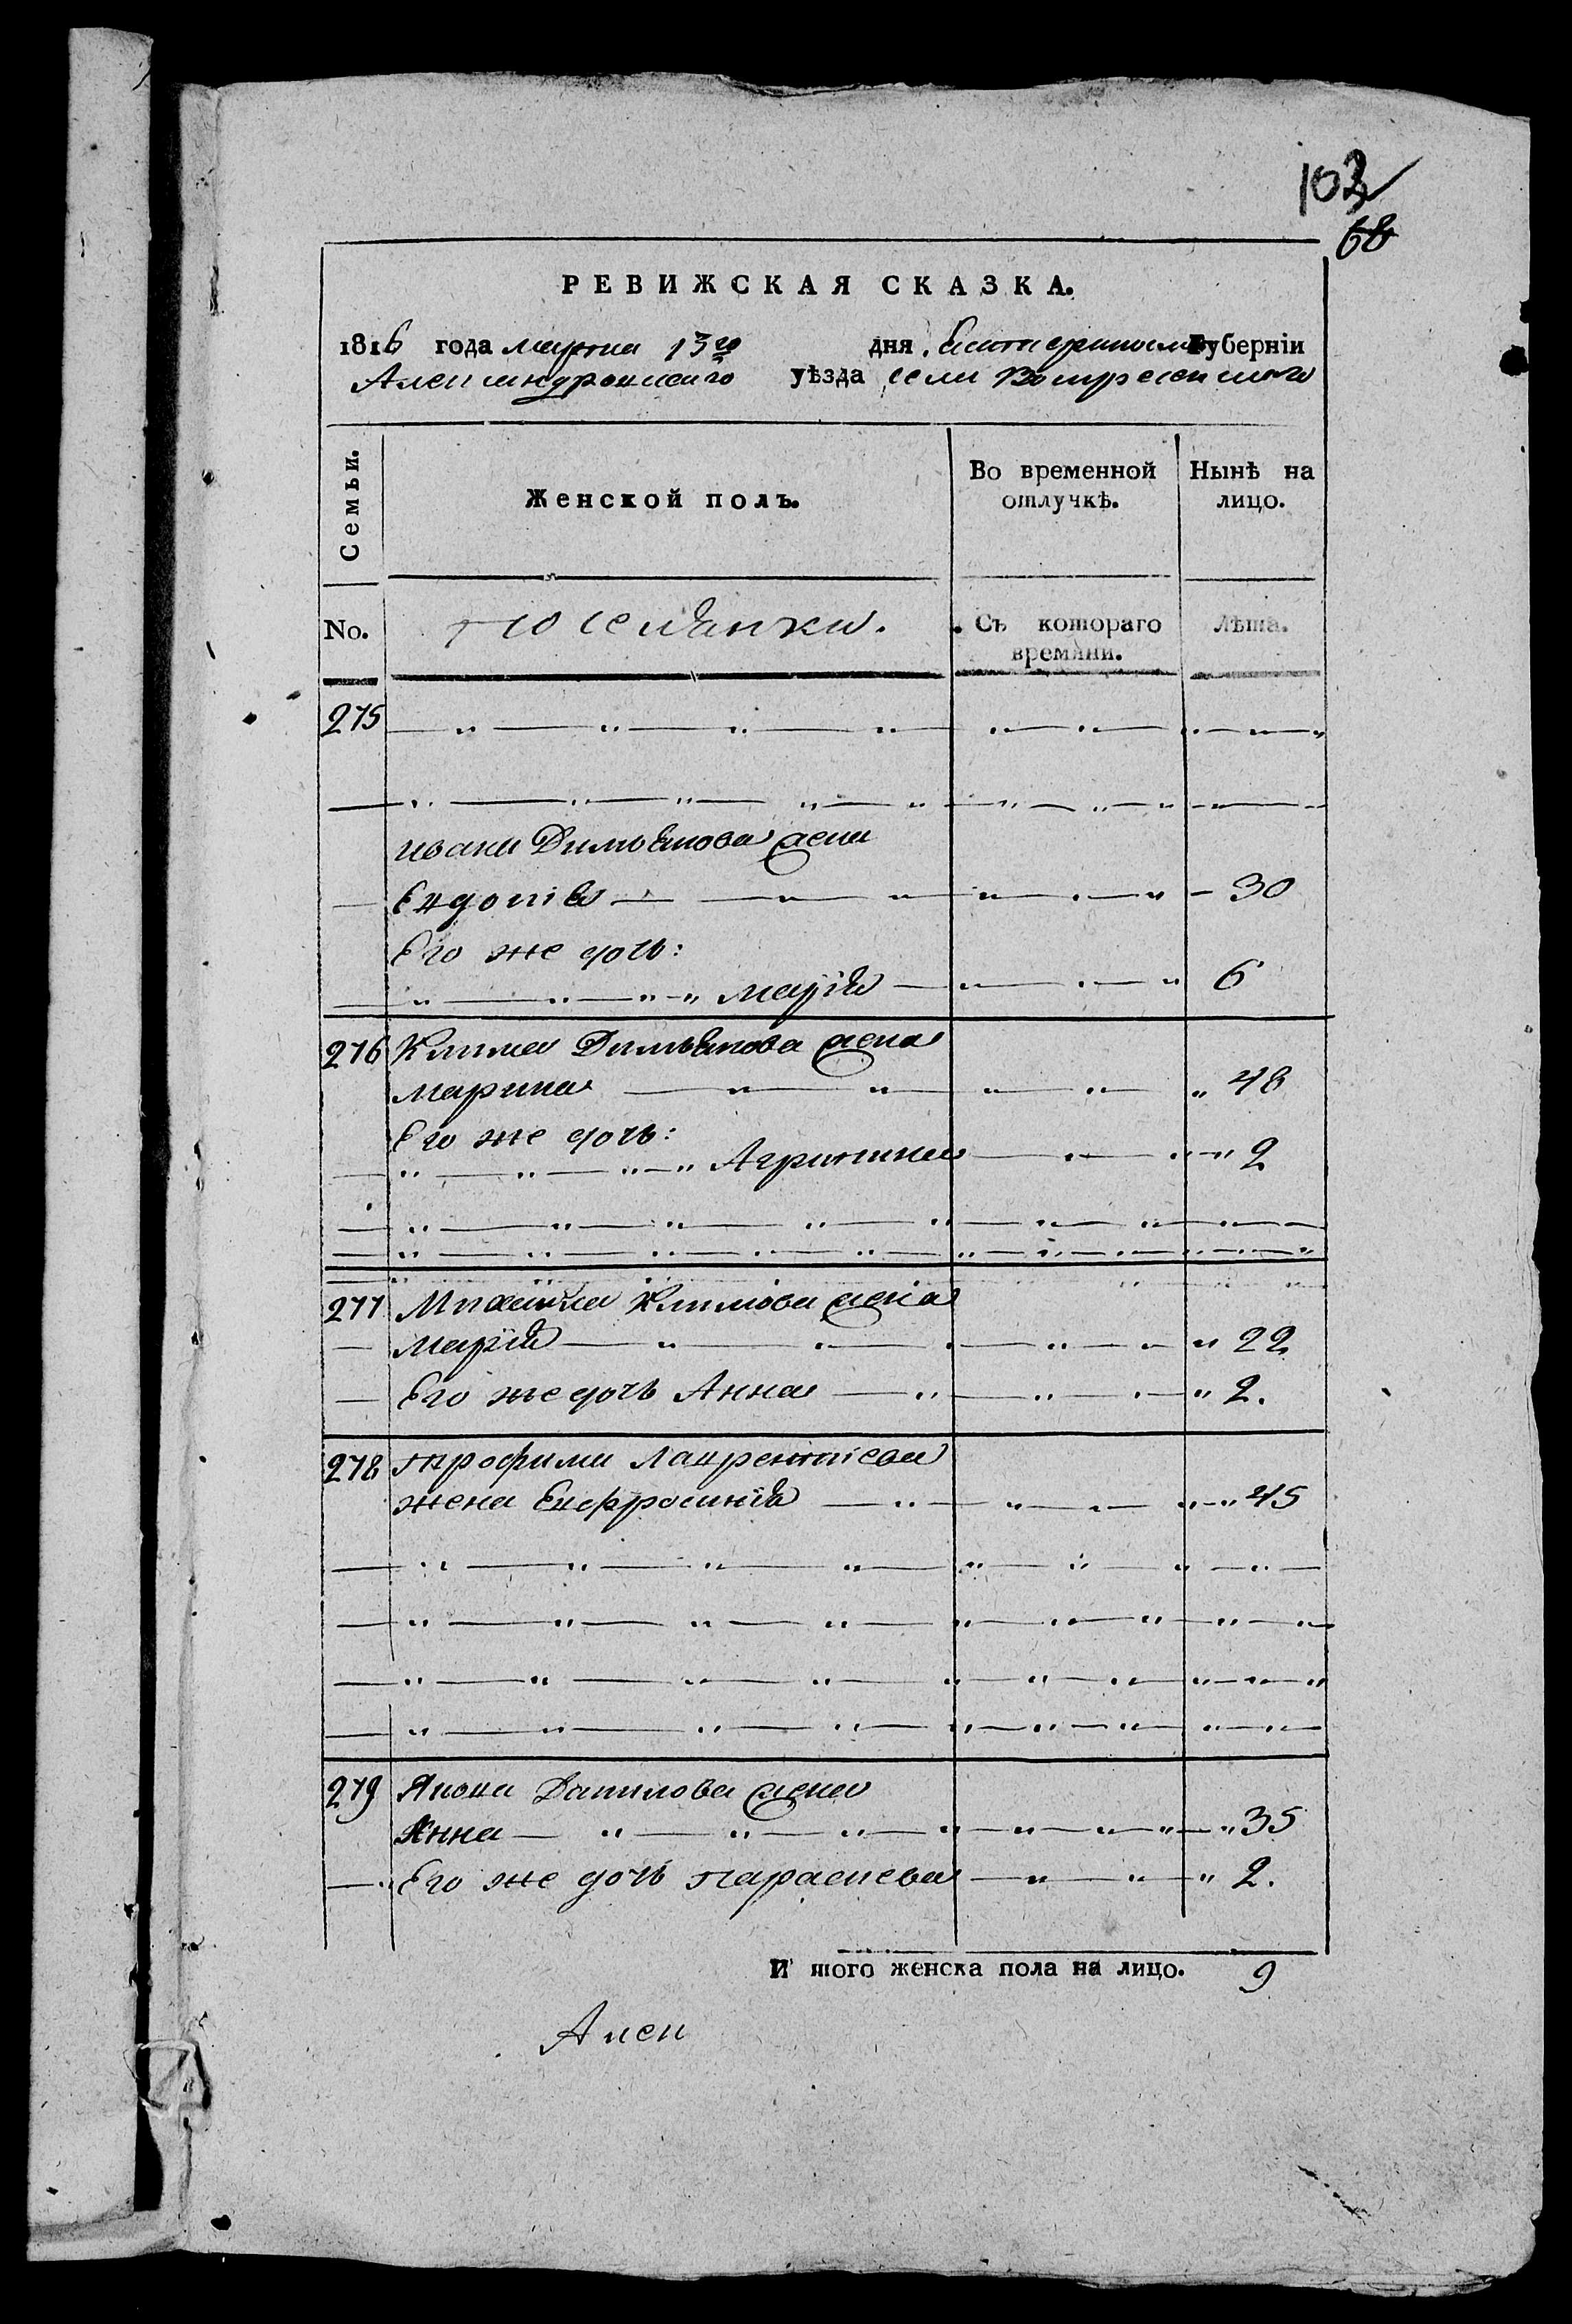 103
68
РЕВИЖСКАЯ СКАЗКА.
1816 года марта 13го дня. Екатериносла Губерніи
Александровскаго уѣзда села Воскресенскаго
Семьи. Женской полъ. Во временной отлучкѣ. Нынѣ на лицо.
No. поселянки. Съ котораго времяни. Лѣта.
275
Ивана Димьянова жена
Евдокія 30
Его же дочь:
Марія 6
276 Клима Димьянова жена
Марина 48
Его же дочь:
Агрипина 2
277 Михаила Климова жена
Марія 22
Его же дочь Анна 2.
278 Трофима Лаврентіева
жена Евфросинія 45
279 Якова Данилова жена
Анна 35
Его же дочь Параскева 2.
И того женска пола на лицо. 9
Алек